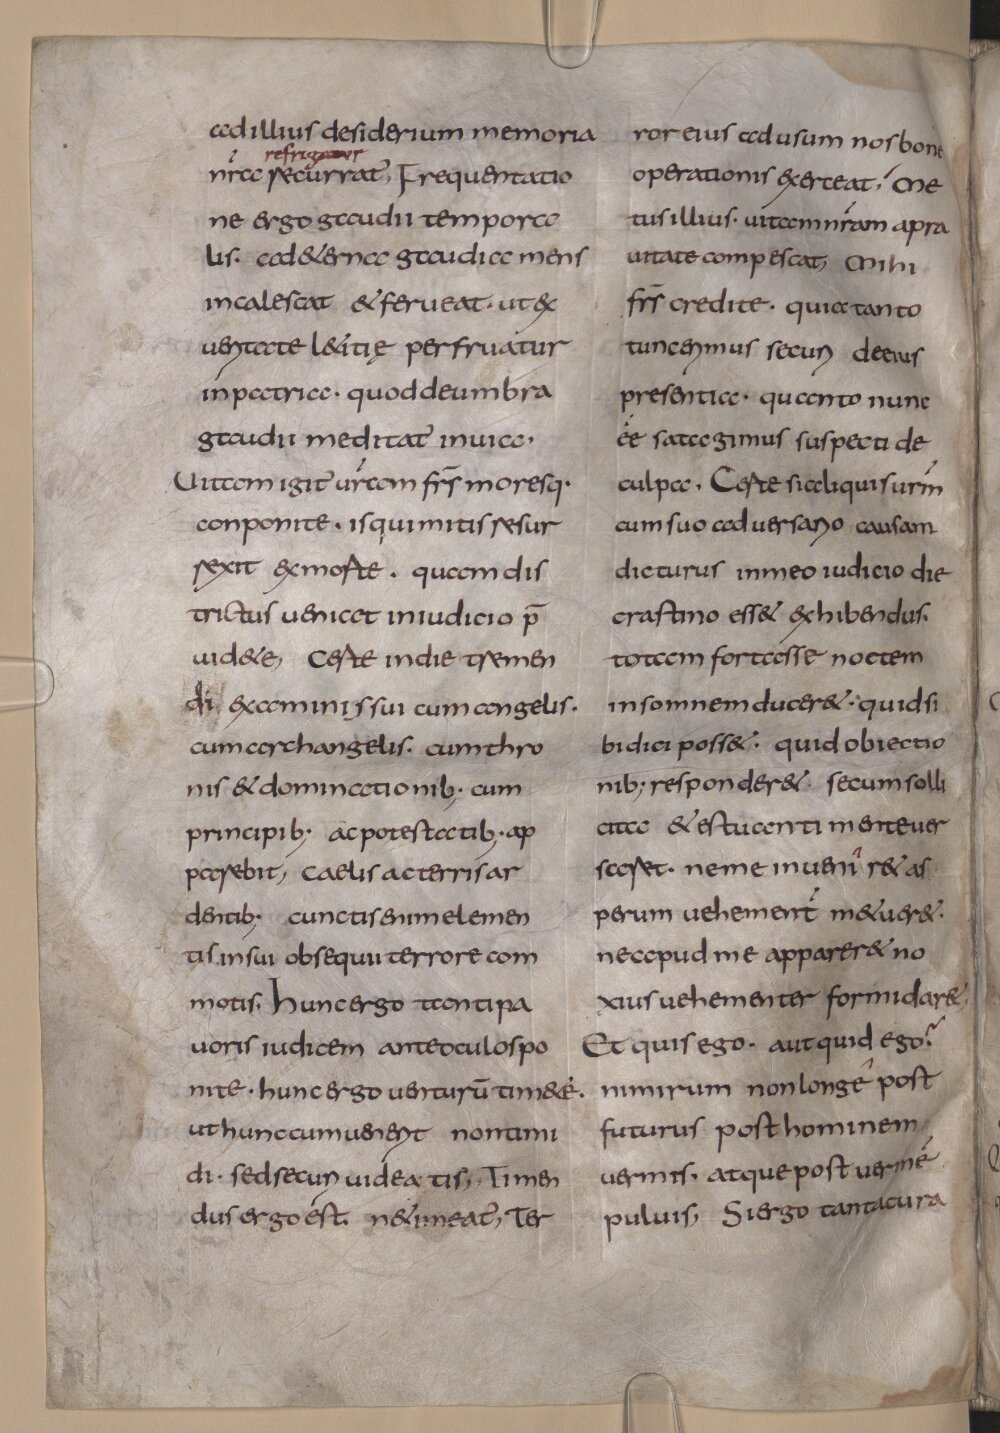 ad illius desiderium memoria
refrigaver
nr̄a recurrat, Frequentatio
ne ergo gaudii tempora
lis. ad &erna gaudia mens
incalescat & ferueat. ut ex
ueritate l&itię perfruatur
in patria. quod de umbra
gaudii meditat̄ in uia.
Uitam igit̄ ur̄am frs̄ moresq.
conponite. is qui mitis resur
rexit ex morte. quam dis
trictus ueniat in iudicio p̄
uid&e, Certe in die tremen
di examinis sui cum angelis.
cum archangelis. cum thro
nis & dominationib; cum
principib; ac potestatib; ap
parebit, caelis ac terris ar
dentib; cunctis enim elemen
tis. in sui obsequii terrore com
motis. hunc ergo tanti pa
uoris iudicem ante oculos po
nite. hunc ergo uenturū tim&e.
ut hunc cum uenerit non timi
di. sed securi uideatis, Timen
dus ergo est. ne timeat̄, Ter
ror eius ad usum nos bone
operationis exerceat, Me
tus illius. uitam nr̄am a pra
uitate compescat, Mihi
frs̄ credite. quia tanto
tunc erimus securi de eius
presentia. quanto nunc
ee satagimus suspecti de
culpa. Certe si aliquis urm̄
cum suo aduersario causam
dicturus in meo iudicio die
crastino ess& exhibendus.
totam fortasse noctem
insomnem ducer&. quid si
bi dici poss&. quid obiectio
nib; responder& secum solli
cita & estuanti mente uer
sar&. ne me inuenir& as
perum uehement̄ m&uer&.
ne apud me apparer& no
xius uehementer formidar&,
Et quis ego. aut quid ego?
nimirum non longe post
futurus post hominem
uermis. atque post uerme
puluis, Si ergo tanta cura